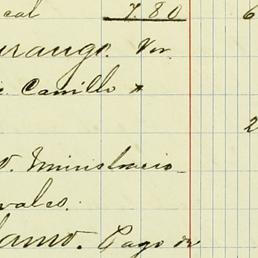 cal 7.80 6
urango. Ver
Camillo x
2
o. Ministracio-
vales.
lamo. Pago de